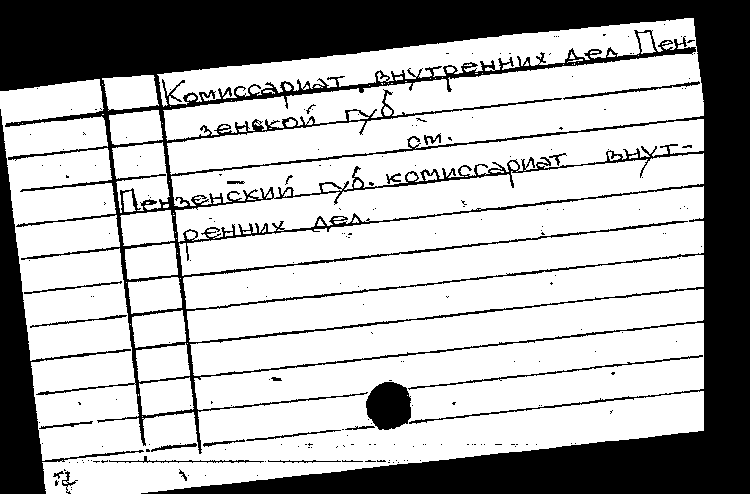 Комиссариат внутренних дел Пен-
зенской губ.
см.
Пензенский губ. комиссариат внут-
ренних дел.